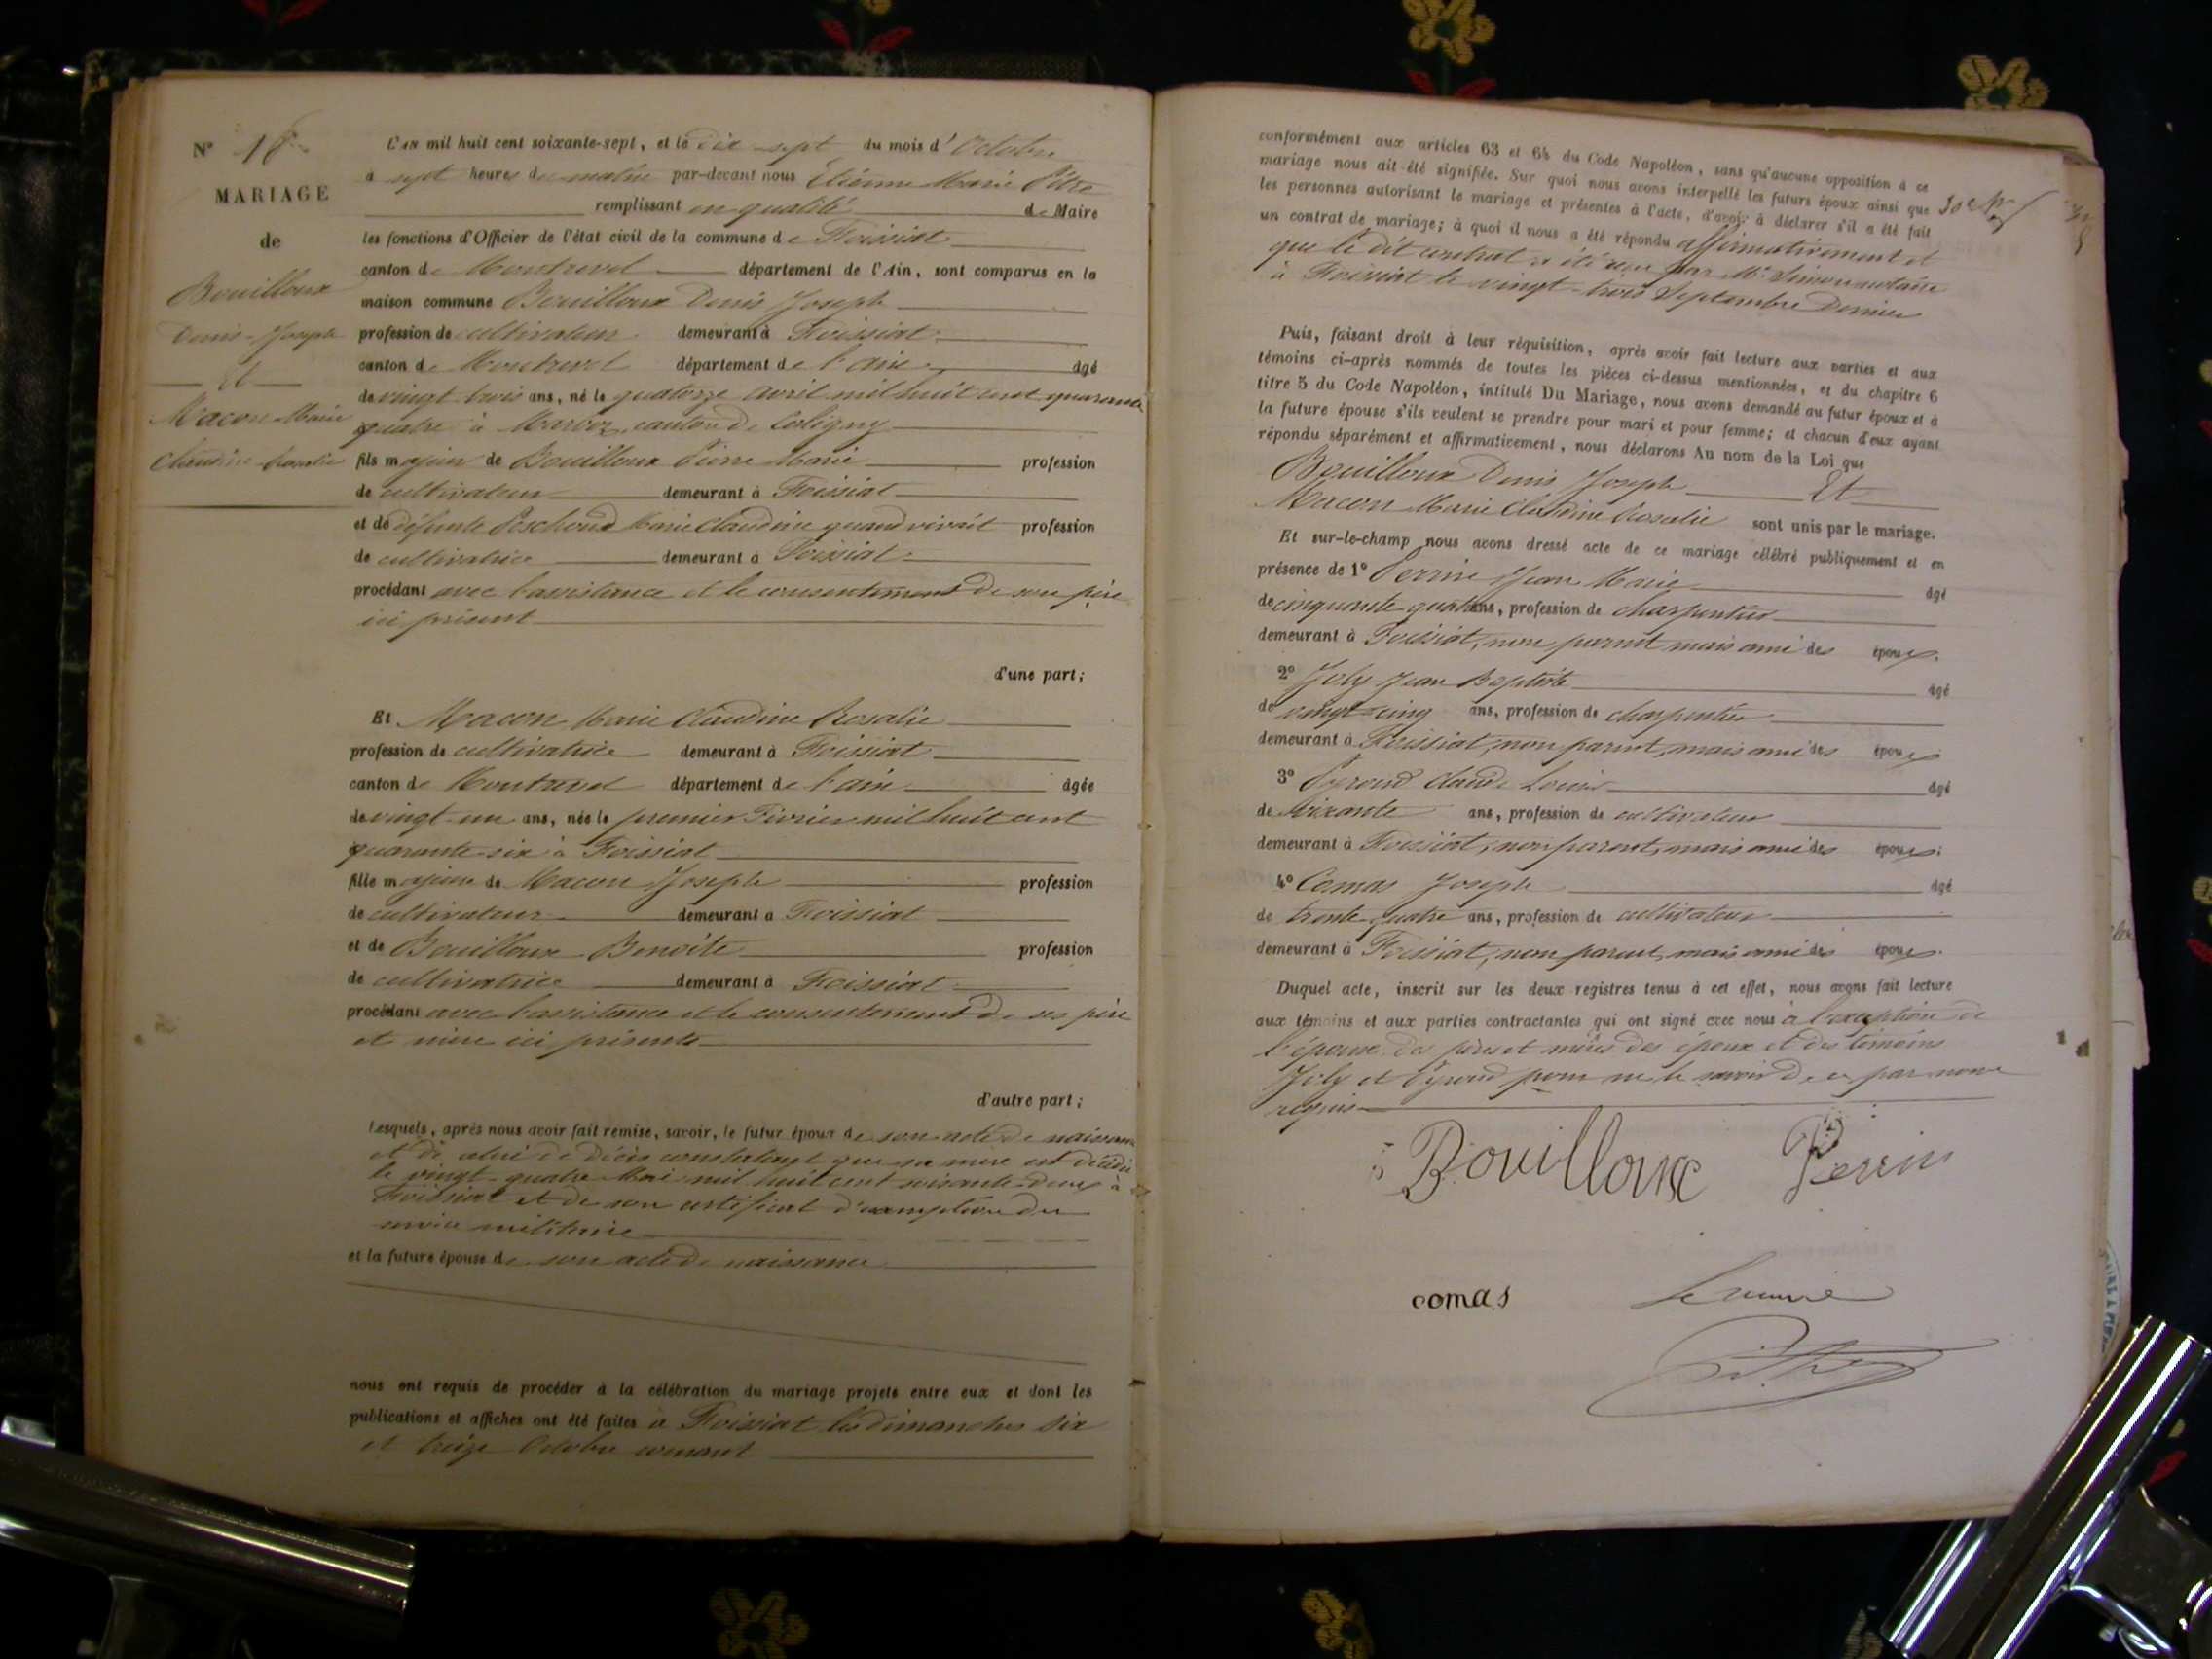 N° 18
MARIAGE
de
Bouilloux
Denis-Joseph
Et
Macon Marie
Claudine Rosalie
L'an mil huit cent soixante-sept, et le dix sept du mois d'Octobre
a sept heures du matin par-devant nous Etienne Marie Pitre
remplissant en qualité de Maire
les fonctions d'Officier de l'état civil de la commune de Foissiat
canton de Montrevel département de l'Ain, sont comparus en la
maison commune Bouilloux Denis Joseph
profession de cultivateur demeurant à Foissiat
canton de Montrevel département de l'ain âgé
de vingt trois ans, né le quatorze avril mil huit cent quarante
quatre à Marboz canton de Coligny
fils majeur de Bouilloux Pierre Marie profession
de cultivateur demeurant à Foissiat
et de défunte Marie Claudine quand vivait profession
de cultivatrice demeurant à Foissiat
procédant avec l'assistance et le consentement de son père
ici présent
d'une part;
Et Macon Marie Claudine Rosalie
profession de cultivatrice demeurant à Foissiat
canton de Montrevel département de l'ain âgée
de vingt un ans, née le premier Février mil huit cent
quarante six à Foissiat
fille majeure de Macon Joseph profession
de cultivateur demeurant à Foissiat
et de Bouilloux Benoite profession
de cultivatrice demeurant à Foissiat
procédant avec l'assistance et le consentement de ses père
et mère ici présents
d'autre part;
Lesquels, après nous avoir fait remise, savoir, le futur époux de son acte de naissance
et de celui de décès constatant que sa mère est décédée
le vingt quatre Mai mil huit cent soixante deux à
Foissiat et de son certificat d'exemption du
service militaire
et la future épouse de son acte de naissance
nous ont requis de procéder à la célébration du mariage projeté entre eux et dont les
publications et affiches ont été faites à Foissiat les dimanches six
et treize Octobre courant
conformément aux articles 63 et 64 du Code Napoléon, sans qu'aucune opposition à ce
mariage nous ait été signifiée. Sur quoi nous avons interpellé les futurs époux ainsi que
les personnes autorisant le mariage et présentes à l'acte, d'avoir à déclarer s'il a été fait
un contrat de mariage; à quoi il nous a été répondu affirmativement et
que le dit contrat a été reçu par Mr Simon notaire
à Foissiat le vingt-trois Septembre Dernier
Puis, faisant droit à leur réquisition, après avoir fait lecture aux parties et aux
témoins ci-après nommés de toutes les pièces ci-dessus mentionnées, et du chapitre 6
titre 5 du Code Napoléon, intitulé Du Mariage, nous avons demandé au futur époux et à
la future épouse s'ils veulent se prendre pour mari et pour femme; et chacun d'eux ayant
répondu séparément et affirmativement, nous déclarons Au nom de la Loi que
Bouilloux Denis Joseph Et
Macon Marie Claudine Rosalie sont unis par le mariage.
Et sur-le-champ nous avons dressé acte de ce mariage célébré publiquement et en
présence de 1° Perrin Jean Marie âgé
de cinquante quatre ans, profession de charpentier
demeurant à Foissiat, non parent mais ami des époux.
2° Joly Jean Baptiste âgé
de vingt-cinq ans, profession de charpentier
demeurant à Foissiat, non parent, mais ami des époux
3° Claude Louis âgé
de soixante ans, profession de cultivateur
demeurant à Foissiat, non parent, mais ami des époux;
4° Comas Joseph âgé
de trente quatre ans, profession de cultivateur
demeurant à Foissiat, non parent, mais ami des époux.
Duquel acte, inscrit sur les deux registres tenus à cet effet, nous avons fait lecture
aux témoins et aux parties contractantes qui ont signé avec nous à l'exception de
l'épouse des pères et mères des époux et des témoins
Joly et pour ne le savoir de ce par nous
requis
Bouilloux Perrin
comas Le maire